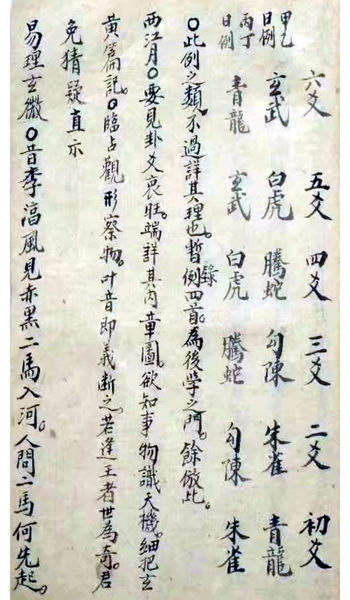 六爻 五爻 四爻 三爻 二爻 初爻
甲乙日例 玄武 白虎 騰蛇 勾陳 朱雀 青龍
丙丁日例 青龍 玄武 白虎 騰蛇 勾陳 朱雀
〇此例之類。不過詳其理也。暫錄例四首。為後學之門。餘倣此。
西江月〇要見卦爻衰旺。端詳其內章圖。欲知事物識天機。細把玄
黃篇記。〇臨占觀形察物。叶音即義斷之。若逢王者世為奇。君
免猜疑直示
易理玄微〇昔李淳風見赤黑二馬入河。人問二馬何先起。